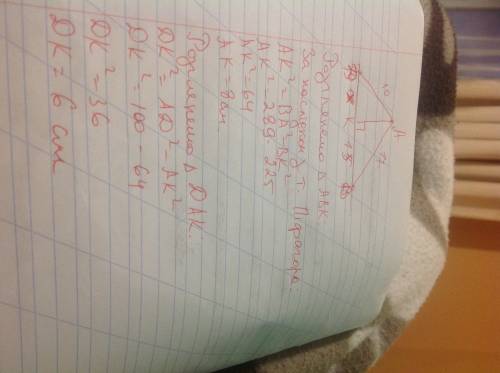 10
A
17
D x K 15 B
Розглянемо Δ ABK
За наслідком з т. Піфагора.
AK² = BA² - BK²
AK² = 289 - 225
AK² = 64
AK = 8см
Розглянемо Δ DAK:
DK² = AD² - AK²
DK² = 100 - 64
DK² = 36
DK = 6 см